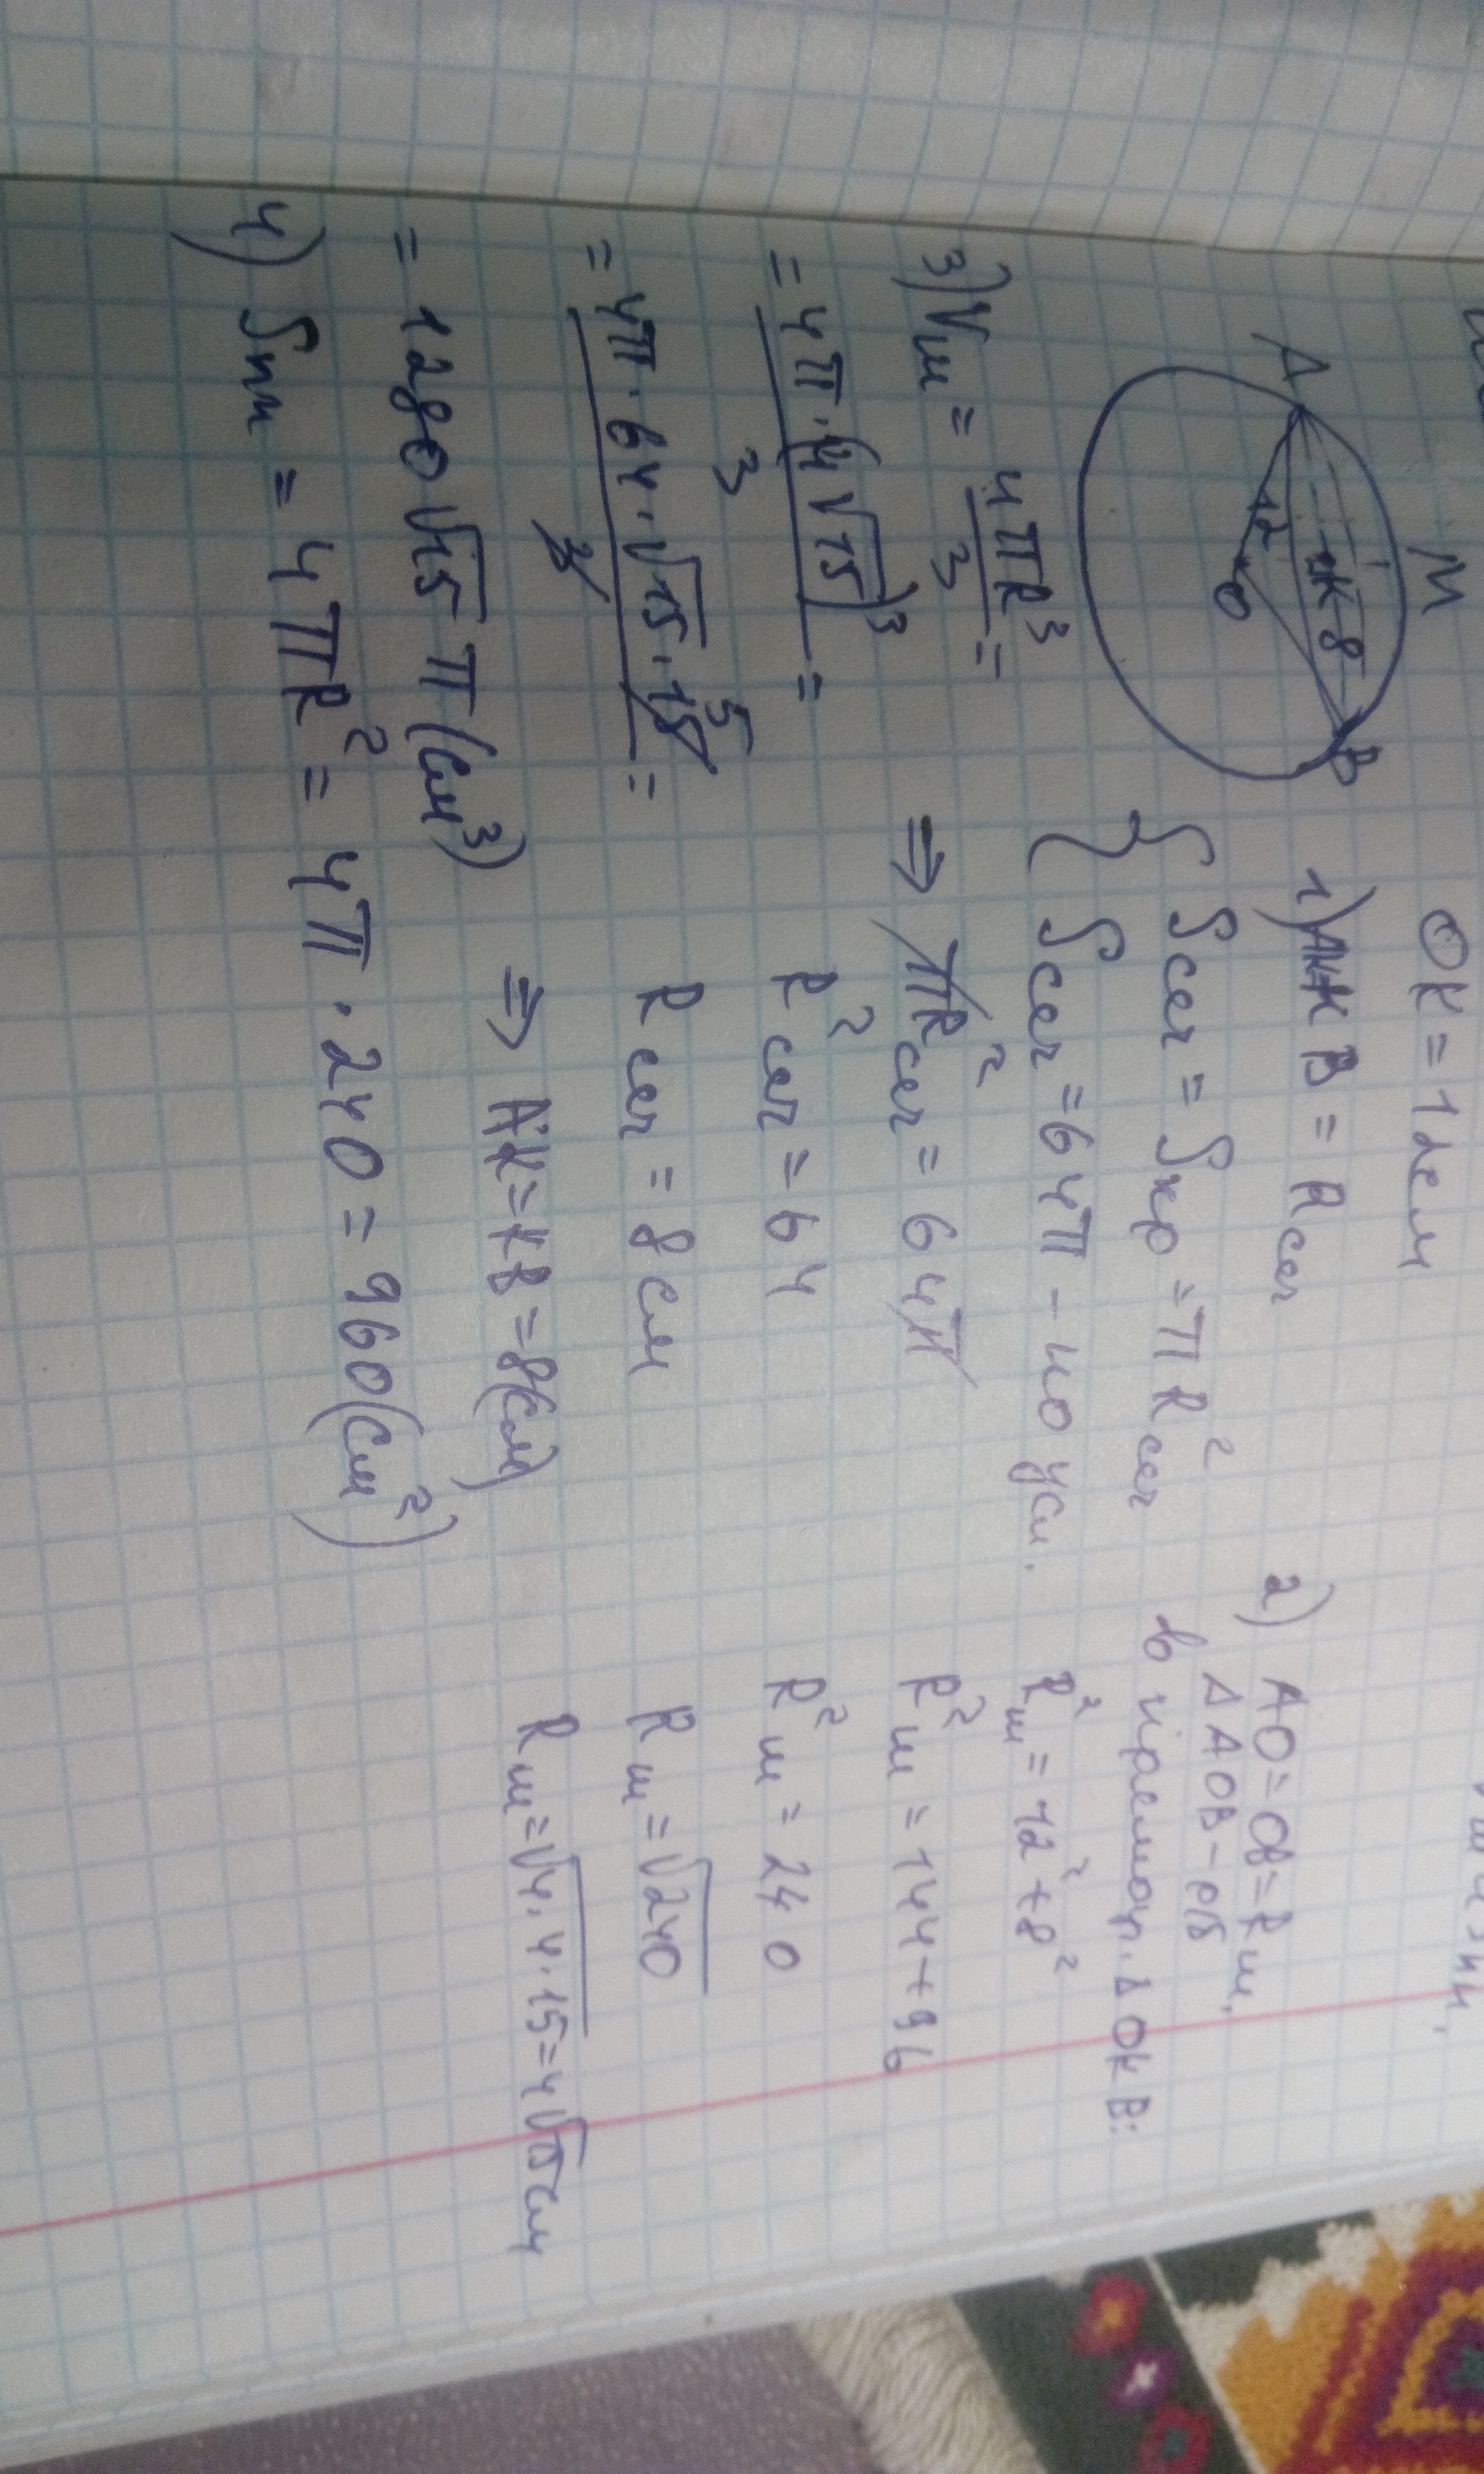 OK = 12см
A
M
B
K
8
12
O
1) KB = Rсег
{ Sсег = Sкр = πR²сег
Sсег = 64π - по усл.
⇒ πR²сег = 64π
R²сег = 64
Rсег = 8см
⇒ AK = KB = 8(см)
2) AO = OB = Rш,
Δ AOB - р/б
В прямоуг. Δ OKB:
R²ш = 12² + 8²
R²ш = 144 + 96
R²ш = 240
Rш = √240
Rш = √4·4·15 = 4√15см
3) Vш = 4πR³/3 =
= 4π·(4√15)³/3 =
= 4π·64·√15·15/3 =
5
= 1280√15 π (см³)
4) Sпп = 4πR² = 4π·240 = 960(см²)